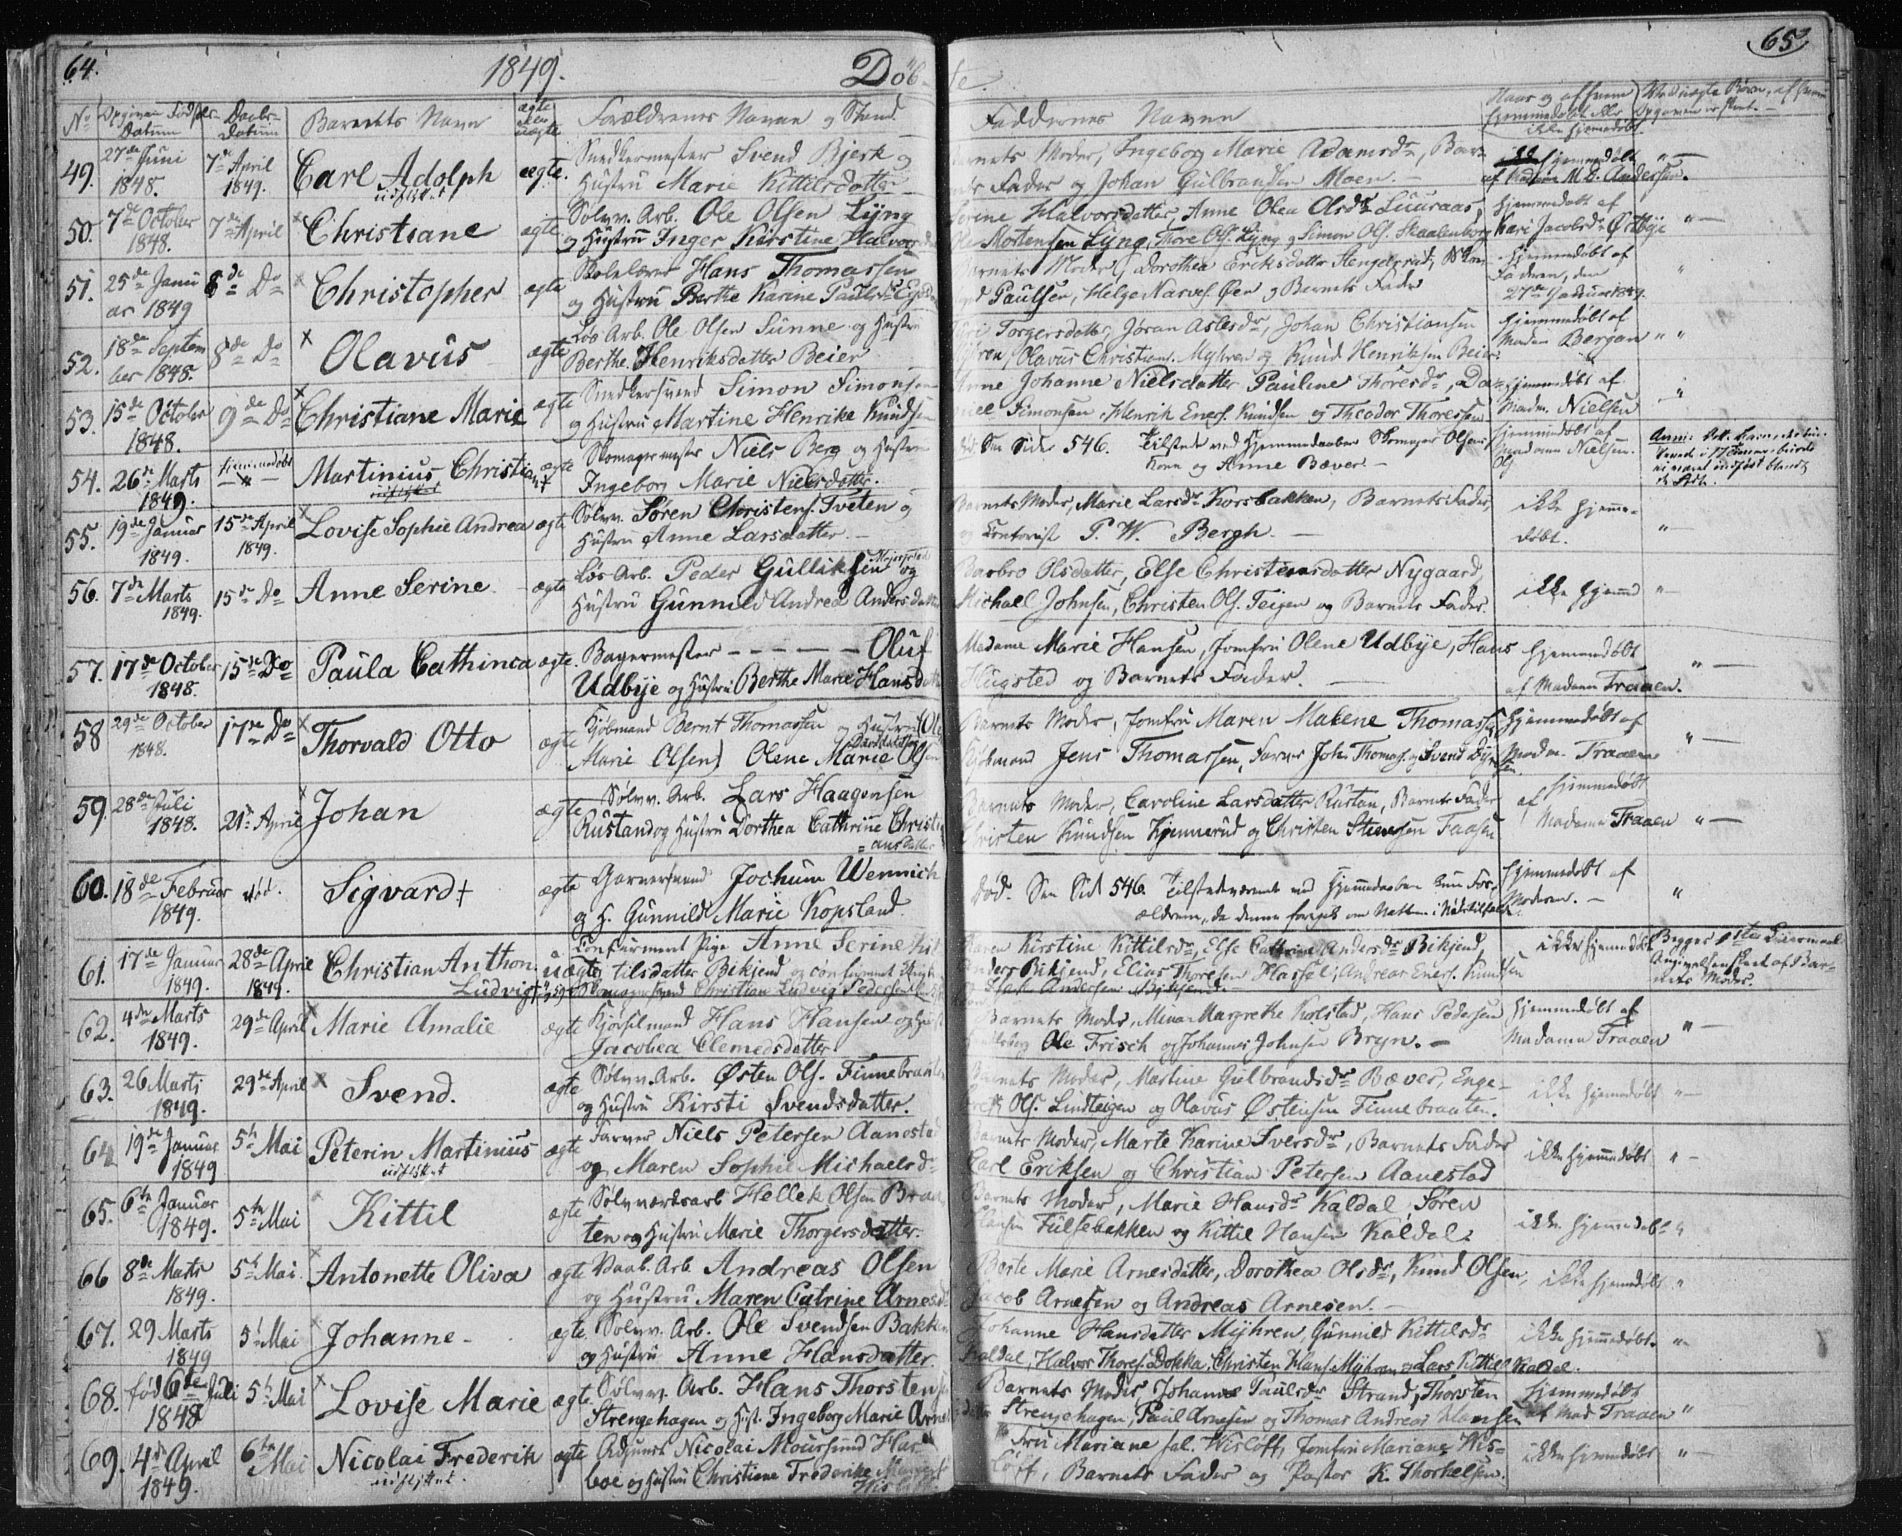 64.
1849.
Døb-
te.
65
No
Opgiven Fødsels-
Datum
Daabs-
Datum
Barnets Navn
ægte
eller
uægte
Forældrenes Navne og Stand
Faddernes Navne
49.
27de Juni
1848.
7de April
1849.
Carl Adolph
udflyttet
ægte.
Snedkermester Svend Bjerk og
Hustru Marie Kittilsdatter
Barnets Moder, Ingeborg Marie Adamsdr, Bar-
nets Fader og Johan Gulbrandsen Moen.
hjemmedøbt
af Madame M. B. Andersen.
50.
7de October
1848.
7de April
Christiane
ægte
Sølvv. Arb. Ole Olsen Lÿng
og Hustru Inger Kirstine Halvorsda
Serine Halvorsdatter, Anne Olea Olsdr Luuraas,
Ole Mortensen Lÿng, Thore Ols. Lÿng og Simon Ols. Skaalenborg
hjemmedøbt af
Kari Jacobsdr Østbye
51.
25de Janu
ar 1849
8de Do
Christopher
ægte
Skolelærer Hans Thomassen
og Hustru Berthe Karine Paulsdr
Barnets Moder, Dorothea Eriksdatter
Paulsen, Helge Narves. Øen og Barnets Fader
hjemmedøbt af
Faderen, den
27de Januar 1849.
52.
18de Septem
ber 1848.
8de Do
Olavus
ægte
Løs Arb. Ole Olsen Sunne og Hustru
Berthe Henriksdatter Beier
Torgersdatter, Jøran Aslesdr, Johan Christiansen
Mÿhren, Olavus Christians. Mÿhren og Knud Henriksen Beier
hjemmedøbt af
Madam Bergan
53.
15de October
1848.
9de Do
Christiane Marie
ægte
Snedkersvend Simon Simonsen
og Hustru Martine Henrike Knudsen
Anne Johanne Nielsdatter, Pauline Thoresdr, Da-
niel Simonsen, Henrik Eners. Knudsen og Theodor Thoresen
hjemmedøbt af
Madm. Nielsen
54.
26de Marts
1849.
hjemmedøbt
Martinius Christi
an †
ægte
Skomagermester Niels Berg og Hustru
Ingeborg Marie Nielsdatter.
død. See Side 546. Tilstede ved Hjemmedaaben Skomager Olsens
Kone og Anne Bæver.
hjemmedøbt af
Madame Nielsen.
55.
19de Januar
1849.
15de April
1849.
Lovise Sophie Andrea
ægte
Sølvv. Søren Christens. Tveten og
Hustru Anne Larsdatter.
Barnets Moder, Marie Larsdr Korsbakken, Barnets Fader,
og Contorist P. W. Bergh.
ikke hjemme-
døbt.
56.
7de Marts
1849.
15de Do
Anne Serine
ægte
Løs Arb. Peder Gulliksen og
Hustru Gunnild Andrea Andersdatter
Barbro Olsdatter, Else Christensdatter Nygaard,
Michael Johnsen, Christen Ols. Teigen og Barnets Fader.
ikke hjemmd
57.
17de October
1848.
15de Do
Paula Cathinca
ægte.
Bagermester - - - - - Oluf
Udbÿe og Hustru Berthe Marie Hansdatt
Madame Marie Hansen, Jomfru Olene Udbÿe, Hans
Hugsted og Barnets Fader.
hjemmedøbt
af Madame Traaen.
58
29de October
1848.
17de Do
Thorvald Otto
ægte
Kjøbmand Bernt Thomassen og Hustru (Ole
Marie Olsen) Olene Marie Olsen
Davidsdatter
Barnets Moder, Jomfru Maren Malene Thomassen
Kjøbmand Jens Thomassen, Farver Johs Thomas. og Svend
hjemmedøbt af
Madm. Traaen
59.
28de Juli
1848.
21de April
Johan
ægte
Sølvv. Arb. Lars Haagensen
Rustand og Hustru Dorthea Cathrine Christi
ansdatter
Barnets Moder, Caroline Larsdatter Rustan, Barnets Fader
Christen Knudsen Kjennerud og Christen Steensen Faasen
hjemmedøbt
af Madame Traaen
60.
18de Februar
1849.
død.
Sigvard †
ægte
Garversvend Jochum Wennich
og H. Gunnild Marie Kopsland.
Død. See Side 546. Tilstedeværende ved Hjemmedaaben kun For-
ældrene, da denne foregik om Natten i Nødstilfælde.
hjemmedøbt af
Moderen.
61.
17de Januar
1849.
28de April
1849.
Christian Anthon
Ludvig †
uægte
Confirmeret Pige Anne Serine Kit
tilsdatter Bikjend og confirmeret
Skomagersvend Christian Ludvig Pedersen
Karen Kirstine Kittilsdr, Else Cathrine Andersdr Bikjend,
Anders Bikjend, Elias Thoresen Hassel, Andreas Eners. Knudsen
og Isak Andersen Bikjend.
ikke hjemmedøbt
Begges 1ste Leiermaal
Angivelsen skeet af Bar-
nets Moder.
62.
4de Marts
1849.
29de April
Marie Amalie
ægte
Kjørselmand Hans Hansen og Hust
Jacobea Clemedsdatter
Barnets Moder, Mina Margrethe Kolstad, Hans Pedersen
Ole Frisch og Johannes Johnsen Bryn.
hjemmedøbt af
Madame Traaen
63.
26 Marts
1849.
29de April
Svend.
ægte
Sølvv. Arb. Østen Ols. Finnebraaten
og Hustru Kirsti Svendsdatter.
Barnets Moder, Martine Gulbrandsdr Bæver, Enge-
bret Ols. Lindteigen og Olavus Østensen Finnebraaten.
ikke hjemmedøbt
64
19de Januar
1849
5te Mai
Peterin Martinius
udflyttet
ægte
Farver Niels Petersen Aanestad
og Maren Sophie Michaelsd
Barnets Moder, Marte Karine Iversdr, Barnets Fader
Carl Eriksen og Christian Petersen Aanestad
ikke hjemmedøbt
65.
6te Januar
1849.
5te Mai
Kittil
ægte
Sølvværksarb Hellek Olsen Braa
ten og Hustru Marie Thorgersdatter.
Barnets Moder, Marie Hansdr Kaldal, Søren
Hansen Fulsebakken og Kittil Hansen Kaldal.
ikke hjemmedøbt
66
8de Marts
1849.
5te Mai.
Antonette Oliva
ægte
Vaab. Arb. Andreas Olsen
og Hustru Maren Catrine Arnesd
Berte Marie Arnesdatter, Dorothea Olsdr, Knud Olsen,
Jacob Arnesen og Andreas Arnesen.
ikke hjemmdøbt
67.
29 Marts
1849
5te Mai
Johanne
ægte
Sølvv. Arb. Ole Svendsen Bakken
og Hustru Anne Hansdatter
Johanne Hansdatter Mÿhren, Gunnild Kittilsdr
Kaldal, Halvor Thores. Dokka, Christen Hans. Mÿhren og Lars Kittils. Kaldal.
ikke hjemmedøbt.
68.
født 6te Juli
1848
5te Mai
Lovise Marie
ægte
Sølvv. Arb. Hans Thorstens
Strengehagen og Hust. Ingeborg Marie Arnes
Barnets Moder, Johanne Paulsdr Strand, Thorsten
Strengehagen, Paul Arnesen og Thomas Andreas Hansen
hjemmedøbt
af Mad Traaen
69.
4de April
1849.
6te Mai
Nicolai Frederik
udflyttet.
ægte
Adjunct Nicolai Moursund Har-
boe og Hustru Christiane Frederike Margret
Wisløff.
Fru Mariane sal. Wisløff, Jomfru Mariane Wis-
løff, Barnets Fader og Pastor K. Thorkelsen.
ikke hjemmedøbt